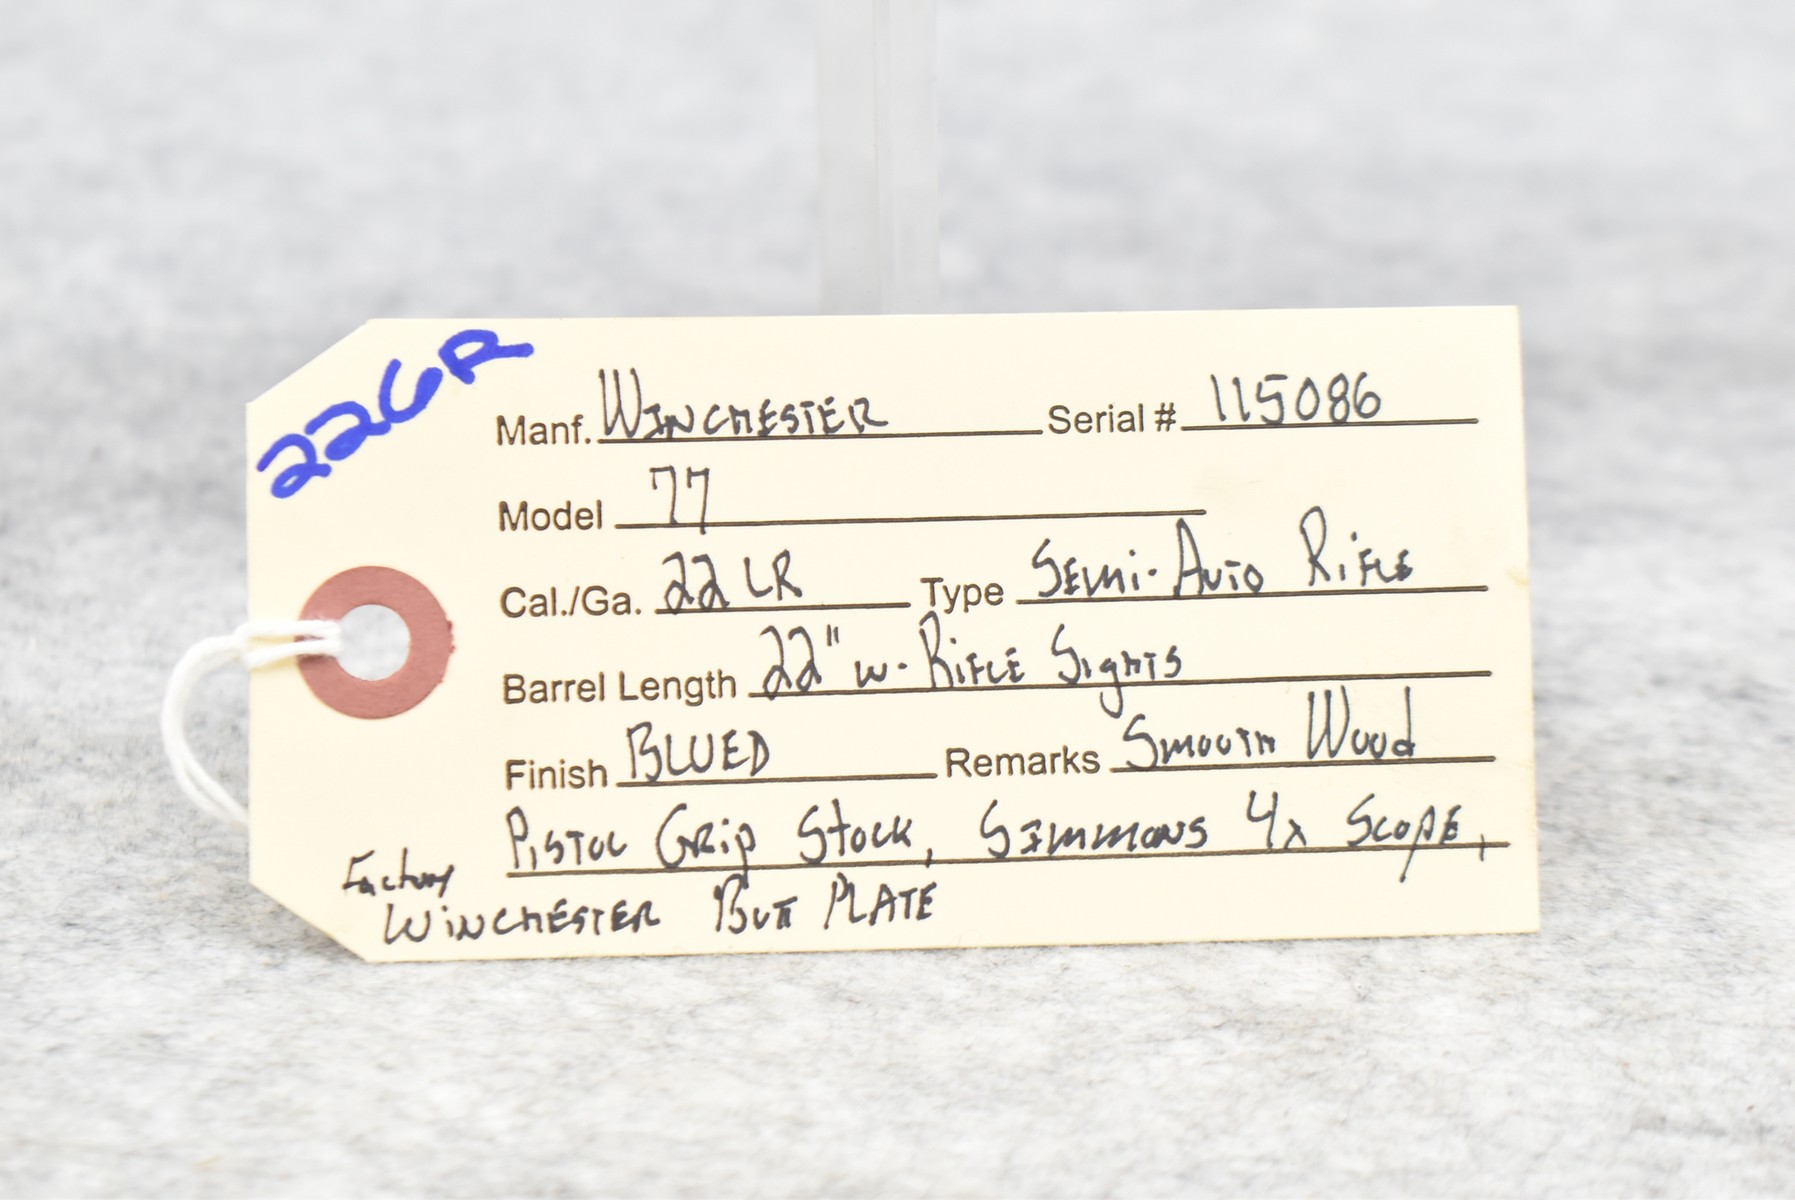 226R
Manf. Winchester Serial # 115086
Model 77
Cal./Ga. 22 LR Type Semi-Auto Rifle
Barrel Length 22" w- Rifle Sights
Finish BLUED Remarks Smooth Wood
Pistol Grip Stock, Simmons 4x Scope,
Factory
Winchester Butt Plate